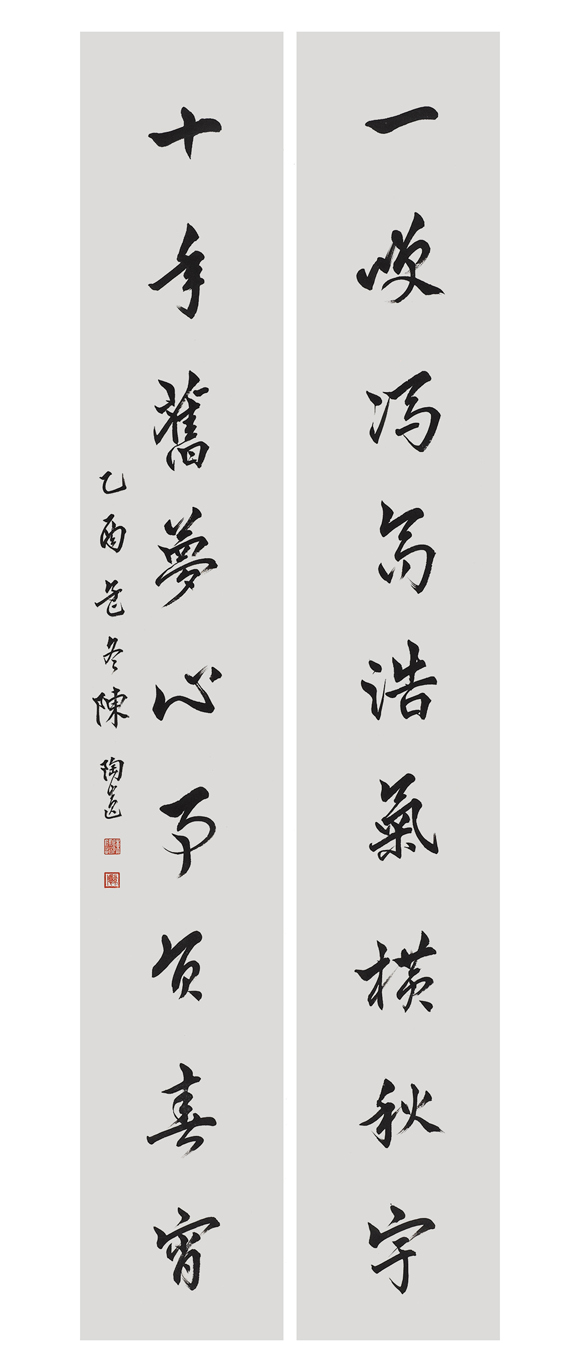 一咲馮高浩氣橫秋宇
十年舊夢心事負春宵
乙酉冬陳陶遺